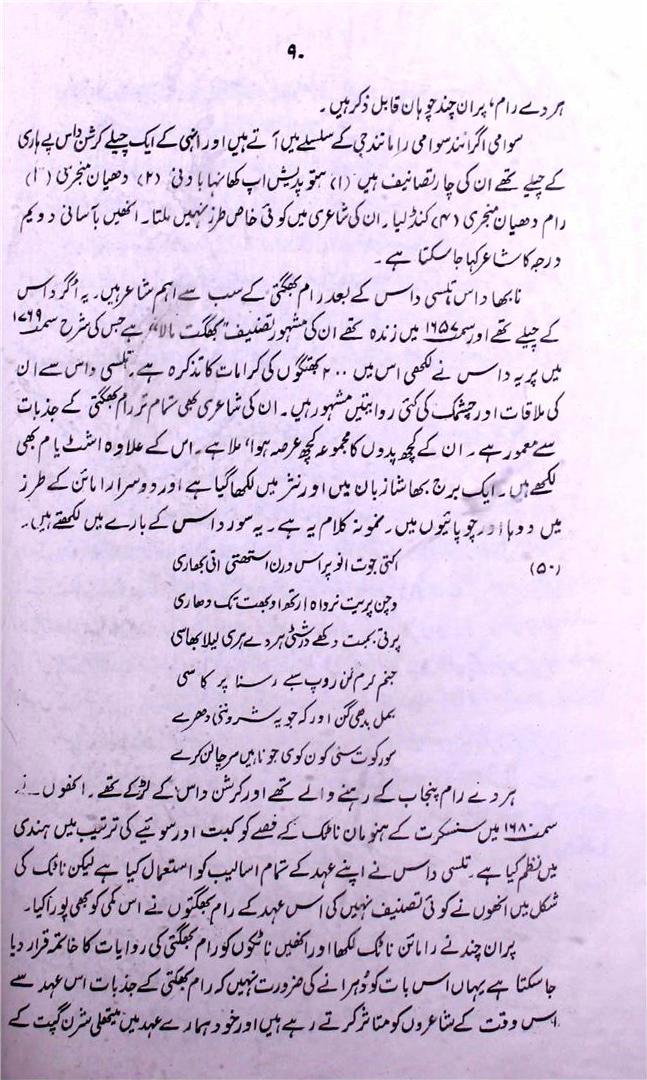 ۹۰
ہردے رام، پران چند چوہان قابل ذکر ہیں۔
سوامی اگرانند سوامی رامانندجی کے سلسلے میں آتے ہیں اور انہی کے ایک چیلے کرشن داس پے ہاری
کے چیلے تھے ان کی چار تصانیف ہیں (۱) ہتوپدیش اپ کھانہا باونی (۲) دھیان منجری (۳)
رام دھیان منجری (۴) کنڈلیا۔ ان کی شاعری میں کوئی خاص طرز نہیں ملتا۔ انھیں بآسانی دویم
درجہ کا شاعر کہا جا سکتا ہے۔
نابھا داس تلسی داس کے بعد رام بھگتی کے سب سے اہم شاعر ہیں۔ یہ اگر داس
کے چیلے تھے اور سمت ۱۶۵۷ میں زندہ تھے ان کی مشہور تصنیف "بھگت مالا" ہے جس کی شرح سمت ۱۷۶۹
میں پریہ داس نے لکھی اس میں ۲۰۰ بھگتوں کی کرامات کا تذکرہ ہے۔ تلسی داس سے ان
کی ملاقات اور چشمک کی کئی روایتیں مشہور ہیں۔ ان کی شاعری بھی تمام تر رام بھگتی کے جذبات
سے معمور ہے۔ ان کے کچھ پدوں کا مجموعہ کچھ عرصہ ہوا، ملا ہے۔ اس کے علاوہ اشٹ یام بھی
لکھے ہیں۔ ایک برج بھاشا زبان میں اور نثر میں لکھا گیا ہے اور دوسرا رامائن کے طرز
میں دوہا اور چوپائیوں میں۔ نمونہ کلام یہ ہے۔ یہ سورداس کے بارے میں لکھتے ہیں۔
(۵۰) اکتی جوت انوپراس ورن استھتی اتی بھاری
وچن پریت نرواہ ارتھ اوبھت تک دھاری
پرتی بمبت دکھے درشٹی ہردے ہری لیلا بھاسی
جنم کرم گن روپ سبے رسنا پرکاسی
بمل بدھی گن اور کہ جو یہ شرونی دھرے
سور کوت سنی کون کوی جو ناہیں سر چالن کرے
ہردے رام پنجاب کے رہنے والے تھے اور کرشن داس کے لڑکے تھے۔ انھوں نے
سمت ۱۶۸۰ میں سنسکرت کے ہنومان ناٹک کے قصے کو کبت اور سوئیے کی ترتیب میں ہندی
میں نظم کیا ہے۔ تلسی داس نے اپنے عہد کے تمام اسالیب کو استعمال کیا ہے لیکن ناٹک کی
شکل میں انھوں نے کوئی تصنیف نہیں کی اس عہد کے رام بھگتوں نے اس کمی کو بھی پورا کیا۔
پران چند نے رامائن ناٹک لکھا اور انھیں ناٹکوں کو رام بھگتی کی روایات کا خاتمہ قرار دیا
جا سکتا ہے یہاں اس بات کو دُہرانے کی ضرورت نہیں کہ رام بھگتی کے جذبات اس عہد سے
اس وقت کے شاعروں کو متاثر کرتے رہے ہیں اور خود ہمارے عہد میں میتھلی شرن گپت کے